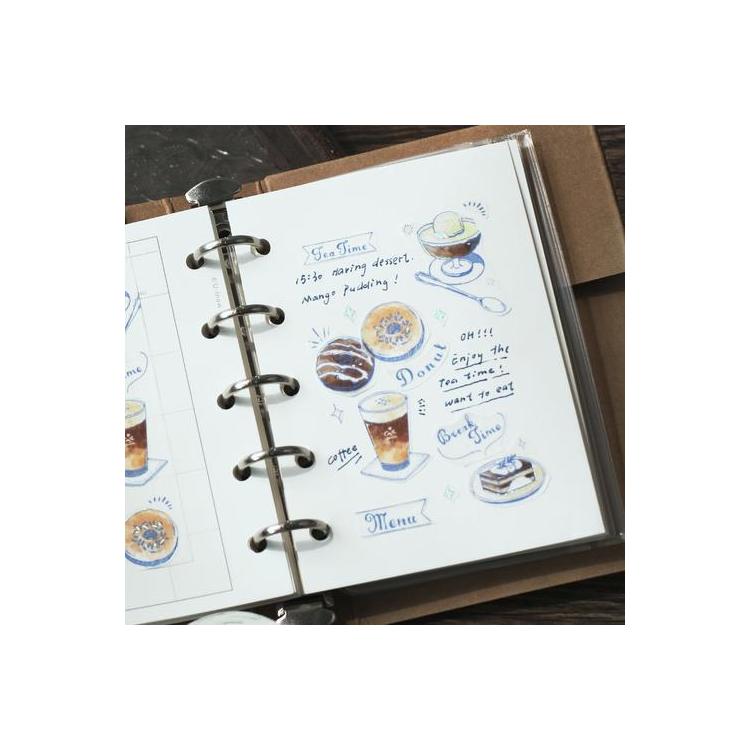 Tea Time
15:30 Having dessert.
Mango Pudding!
OH!!!
Enjoy the
Tea time!
want to eat
Donut
Break
Time
coffee
Menu
me